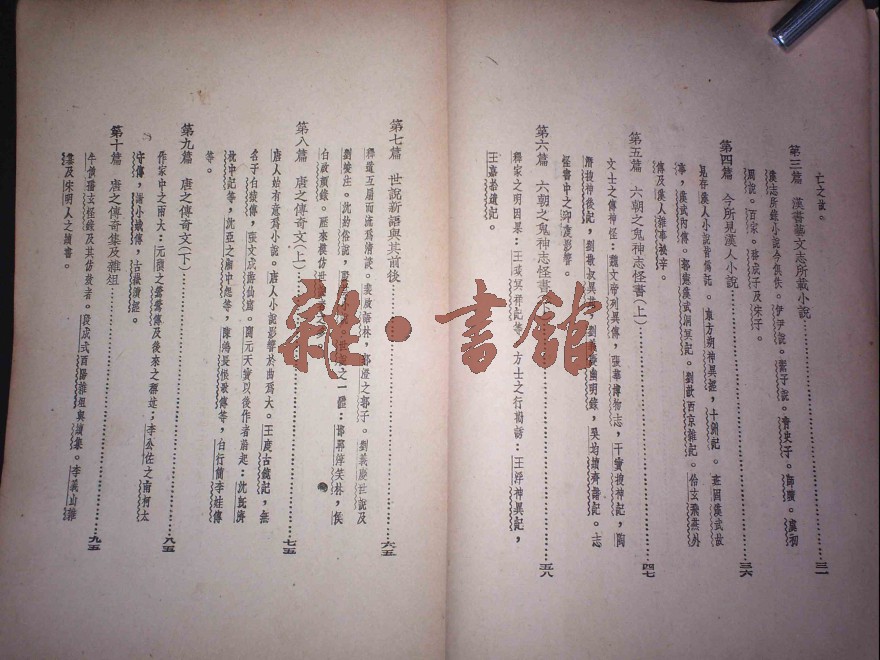 亡之故。
第三篇 漢書藝文志所載小說……三一
漢志所錄小說今俱佚。伊尹說。鬻子說。青史子。師曠。虞初
周說。百家。務成子及宋子。
第四篇 今所見漢人小說……三六
見存漢人小說皆僞託。東方朔神異經,十洲記。班固漢武故
事,漢武內傳。郭憲漢武洞冥記。劉歆西京雜記。伶玄飛燕外
傳及漢人雜事秘辛。
第五篇 六朝之鬼神志怪書(上)……四七
文士之傳神怪:魏文帝列異傳,張華博物志,干寶搜神記,陶
潛搜神後記,劉敬叔異苑,劉義慶幽明錄,吳均續齊諧記。志
怪書中之印度影響。
第六篇 六朝之鬼神志怪書……五八
釋家之明因果:王琰冥祥記等。方士之行勸誘:王浮神異記,
王嘉拾遺記。
第七篇 世說新語與其前後……六五
釋道互扇而流爲清談。裴啟語林,郭澄之郭子。劉義慶世說及
劉孝注。沈約俗說,世說之一體:邯鄲淳笑林,侯
白啟顏錄。歷來模仿世說
第八篇 唐之傳奇文(上)……七五
唐人始有意爲小說。唐人小說影響於曲爲大。王度古鏡記,無
名子白猿傳,張文成游仙窟。開元天寶以後作者蔚起:沈旣濟
枕中記等,沈亞之湘中怨等,陳鴻長恨歌傳等,白行簡李娃傳
等。
第九篇 唐之傳奇文(下)……八五
作家中之兩大:元稹之鶯鶯傳及後來之雜述;李公佐之南柯太
守傳,謝小娥傳,古嶽瀆經。
第十篇 唐之傳奇集及雜俎……九五
牛僧孺玄怪錄及其仿效者。段成式酉陽雜俎與續集。李義山雜
纂及宋明人之續書。
雜·書館